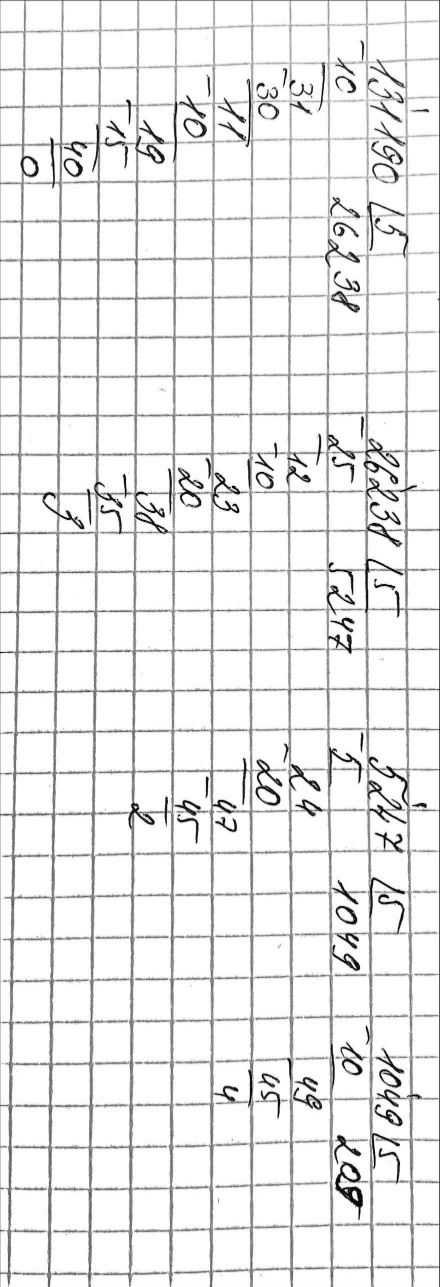 131190 5
-10 26238
31
-30
11
-10
19
-15
40
0
26238 5
-25 5247
12
-10
23
-20
38
-35
3
5247 5
-5 1049
24
-20
47
-45
2
1049 5
-10 209
49
45
4